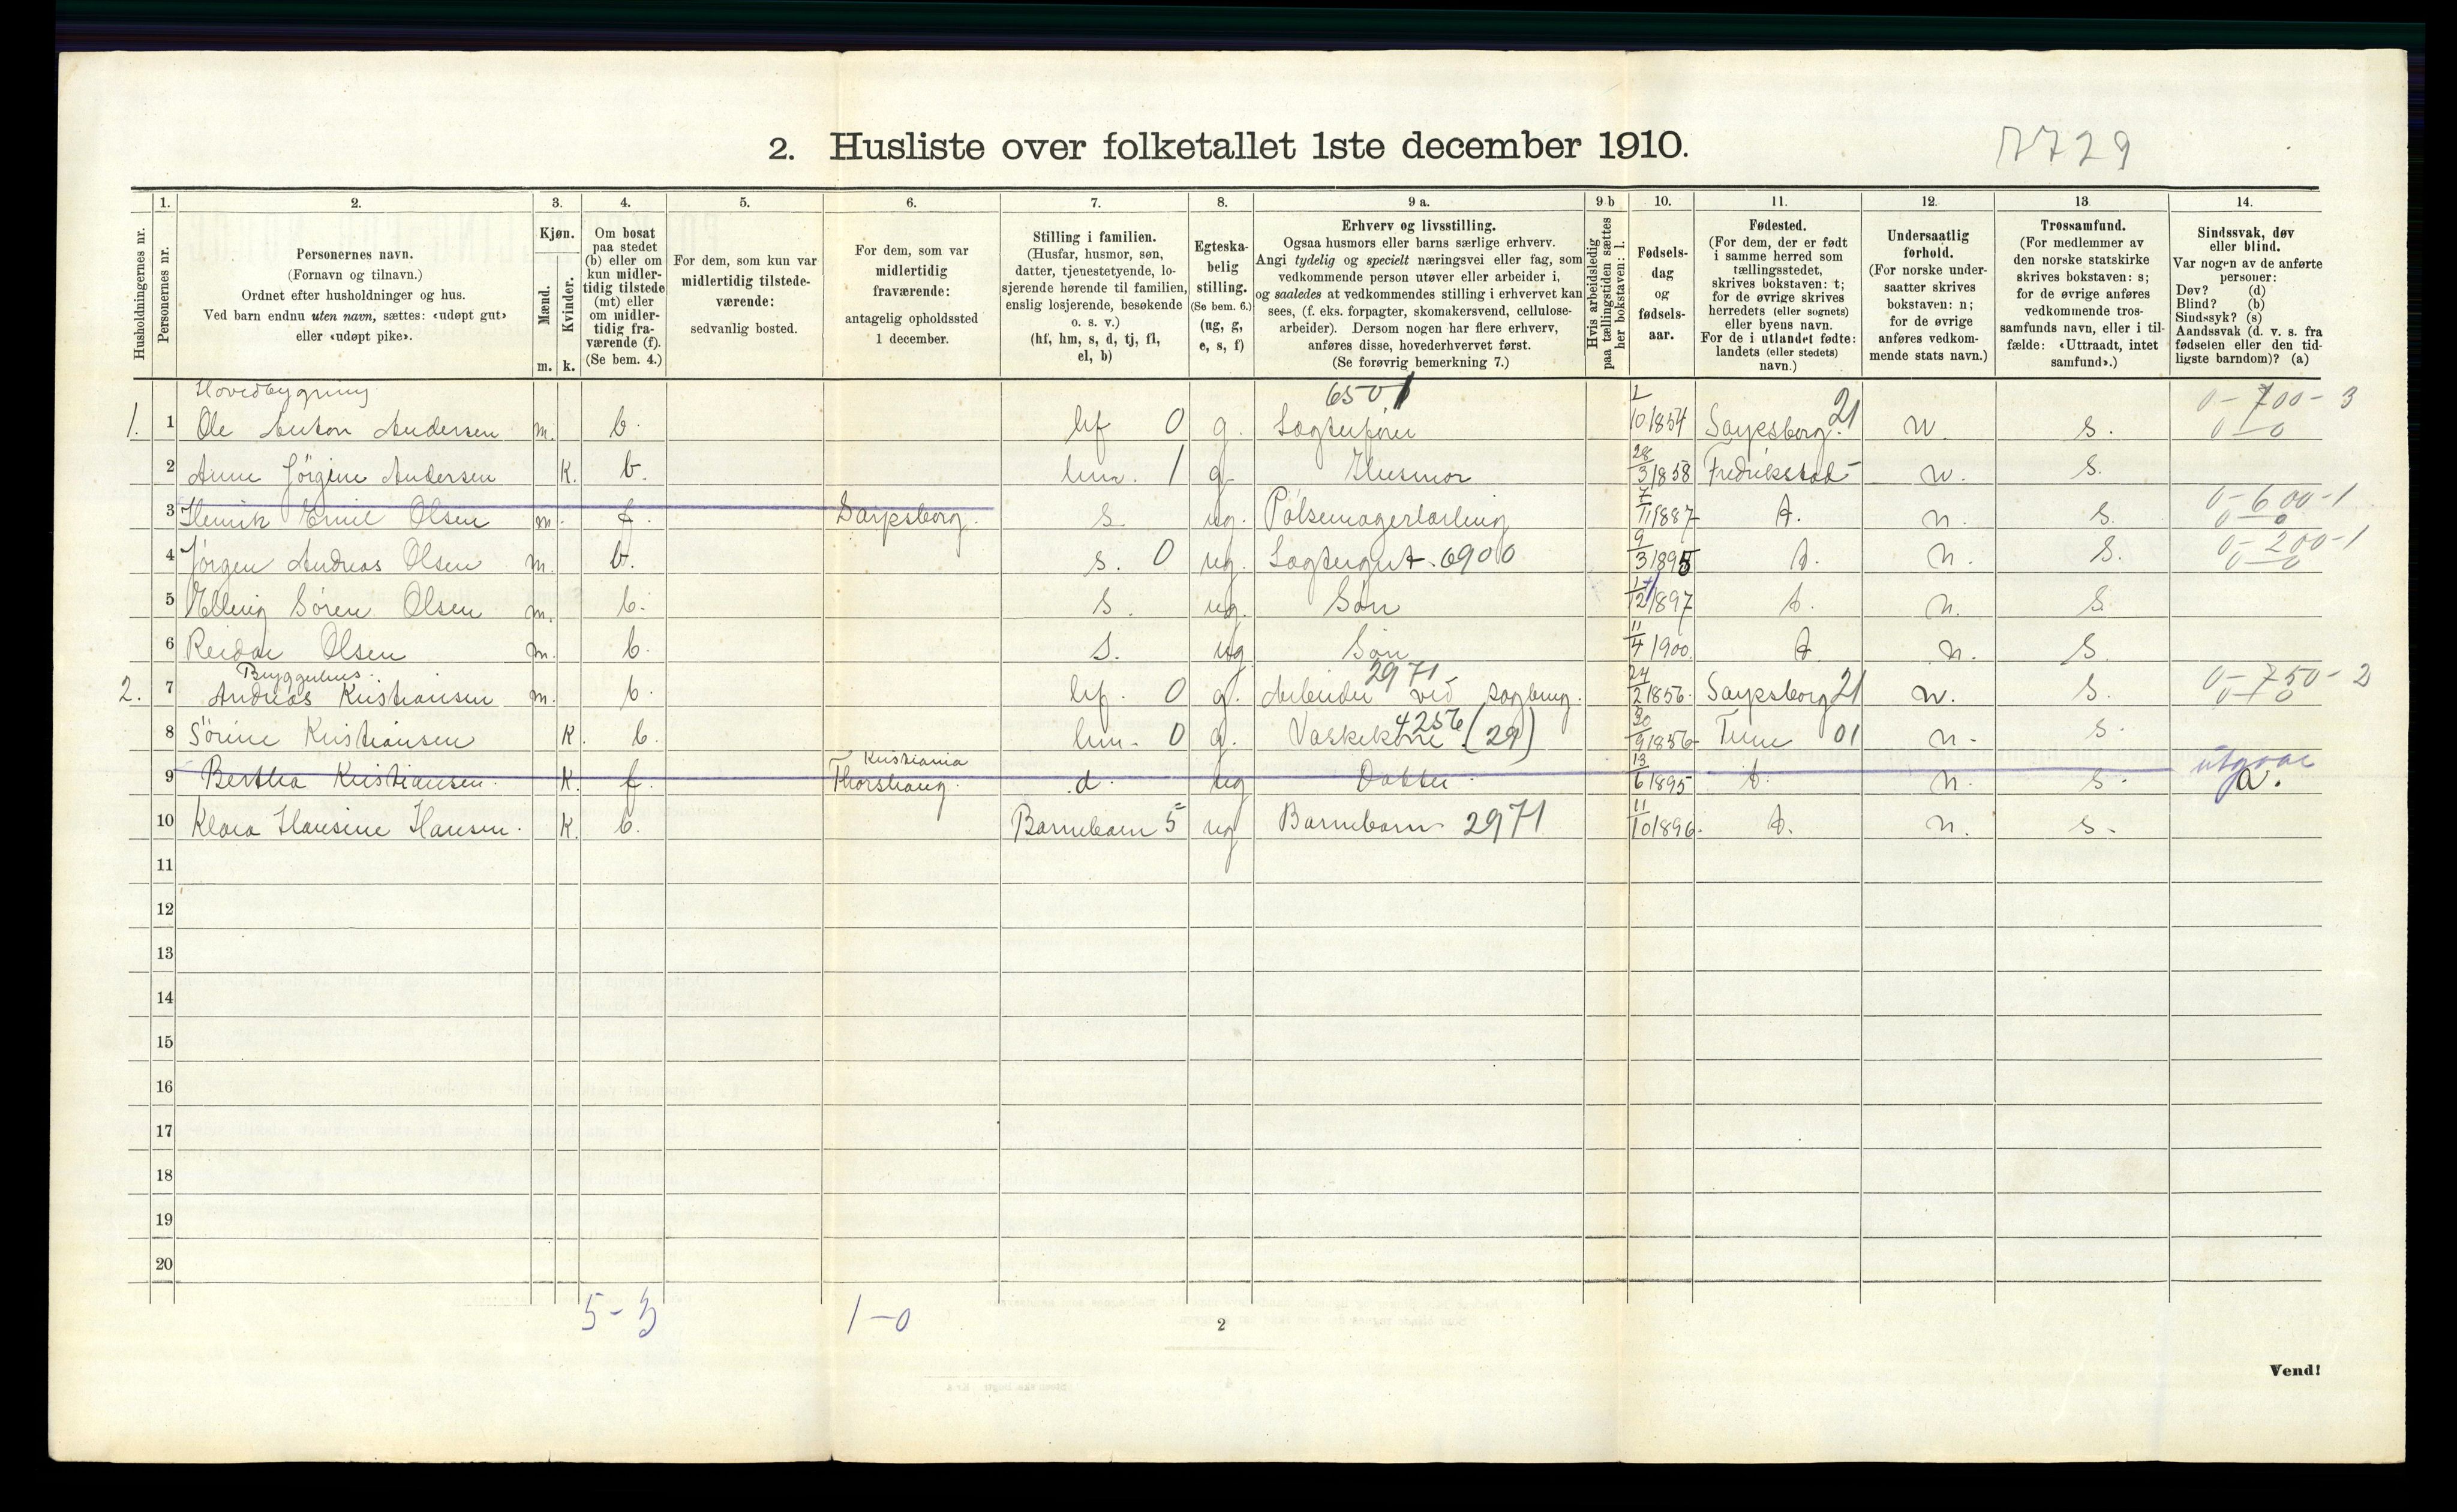 2. Husliste over folketallet 1ste december 1910.
7729
1. 2. 3. 4. 5. 6. 7. 8. 9 a. 9 b 10. 11. 12. 13 14.
Husholdningernes nr.
Personernes nr.
Personernes navn.
(Fornavn og tilnavn.)
Ordnet efter husholdninger og hus.
Ved barn endnu uten navn, sættes: «udøpt gut»
eller «udøpt pike».
Kjøn.
Mænd.
Kvinder.
m. k.
Om bosat
paa stedet
(b) eller om
kun midler-
tidig tilstede
(mt) eller
om midler-
tidig fra-
værende (f).
(Se bem. 4.)
For dem, som kun var
midlertidig tilstede-
værende:
sedvanlig bosted.
For dem, som var
midlertidig
fraværende:
antagelig opholdssted
1 december.
Stilling i familien.
(Husfar, husmor, søn,
datter, tjenestetyende, lo-
sjerende hørende til familien,
enslig losjerende, besøkende
o. s. v.)
(hf, hm, s, d, tj, fl,
el, b)
Egteska-
belig
stilling.
(Se bem. 6.)
(ug, g,
e, s, f)
Erhverv og livsstilling.
Ogsaa husmors eller barns særlige erhverv.
Angi tydelig og specielt næringsvei eller fag, som
vedkommende person utøver eller arbeider i,
og saaledes at vedkommendes stilling i erhvervet kan
sees, (f. eks. forpagter, skomakersvend, cellulose-
arbeider). Dersom nogen har flere erhverv,
anføres disse, hovederhvervet først.
(Se forøvrig bemerkning 7.)
Hvis arbeidsledig
paa tællingstiden sættes
her bokstaven: l.
Fødsels-
dag
og
fødsels-
aar.
Fødested.
(For dem, der er født
i samme herred som
tællingsstedet,
skrives bokstaven: t;
for de øvrige skrives
herredets (eller sognets)
eller byens navn.
For de i utlandet fødte:
landets (eller stedets)
navn.)
Undersaatlig
forhold.
(For norske under-
saatter skrives
bokstaven: n;
for de øvrige
anføres vedkom-
mende stats navn.)
Trossamfund.
(For medlemmer av
den norske statskirke
skrives bokstaven: s;
for de øvrige anføres
vedkommende tros-
samfunds navn, eller i til-
fælde: «Uttraadt, intet
samfund».)
Sindssvak, døv
eller blind.
Var nogen av de anførte
personer:
Døv? (d)
Blind? (b)
Sindssyk? (s)
Aandssvak (d. v. s. fra
fødselen eller den tid-
ligste barndom)? (a)
Hovedbygning 6501 0-700-3
1. 1 Ole Anton Andersen m. b. hf 0 g. 10/1854 Sarpsborg 21 n. s. 0-0
2 Anne Jörgine Andersen K. b. hm. 1 g. Husmor 28/3/1858 Fredrikstad n. s.
3 Henrik Emil Olsen m. f. Sarpsborg. s. ug. Pölsemagerlærling 7/11/887 t. n. s. 0-600-1 0-0
4 Jörgen Andreas Olsen m. b. s. 0 ug. Slagtergut. 6900 9/3/1895 t. n. s. 0-200-1 0-0
5 Elling Sören Olsen m. b. s. ug. Sön 12/1897 t. n. s.
6 Reidar Olsen m. b. s. ug Sön 11/4/1900 t. n. s.
Bryggerhus. 2971
2. 7 Andreas Kristiansen m. b. hf. 0 g. Arbeider ved sagbrug. 24/2/1856. Sarpsborg 21 n. s. 0-750-2 0-0
8 Sörine Kristiansen K. b. hm. 0 g. Vaskekone 4256 (29) 30/9/1856 Tune 01 n. s.
Kristiania utgaar
9 Bertha Kristiansen. K. f. Thorshaug. d. ug Datter 13/6/1895 t. n. s. a.
10 Klara Hansine Hansen. K. b. Barnebarn 5 ug Barnebarn 2971 11/10/1896. t. n. s.
11
12
13
14
15
16
17
18
19
20
5-3 1-0
2
Vend!